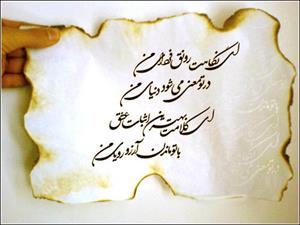 ای نگاهت رونق فردای من
در تو معنی می شود دنیای من
ای کلامت بهترین اثبات عشق
با تو ماندن آرزو رویای من